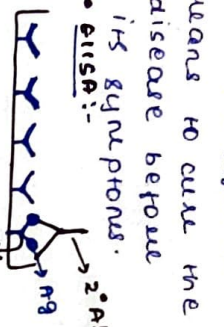 means to cure the
disease before
its symptoms.
• ELISA :-
→ 2° A
→ Ag